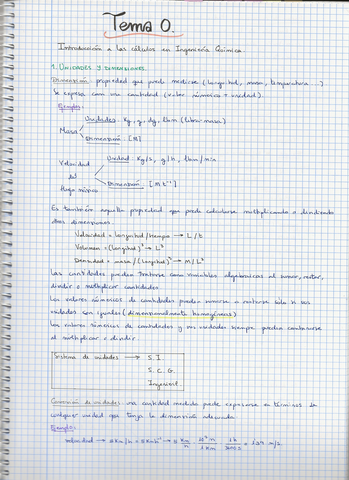 Tema 0.
Introducción a los cálculos en Ingeniería Química.
1. UNIDADES Y DIMENSIONES.
Dimensión: propiedad que puede medirse (longitud, masa, temperatura...)
Se expresa con una cantidad (valor númerico + unidad).
Ejemplo:
Unidades: Kg, g, dg, lbm (libra-masa)
Masa
Dimensión: [M]
Velocidad Unidad: Kg/s, g/h, lbm/min
del
flujo másico Dimensión: [M t⁻¹]
Es también aquella propiedad que puede calcularse multiplicando o dividiendo
otras dimensiones:
Velocidad = longitud/tiempo → L/t
Volumen = (longitud)³ → L³
Densidad = masa/(longitud)³ → M/L³
Las cantidades pueden tratarse como variables algebraicas al sumar, restar,
dividir o multiplicar cantidades.
Los valores númericos de cantidades pueden sumarse o restarse sólo si sus
unidades son iguales (dimensionalmente homogéneos)
Los valores númericos de cantidades y sus unidades siempre pueden combinarse
al multiplicar o dividir.
Sistema de unidades → S.I.
S.C.G.
Ingenieril
Conversión de unidades: una cantidad medida puede expresarse en términos de
cualquier unidad que tenga la dimensión adecuada.
Ejemplo:
velocidad → 5 Km/h = 5 Kmh⁻¹ → 5 Km/h · 10³ m/1 Km · 1 h/3600 s = 1,39 m/s